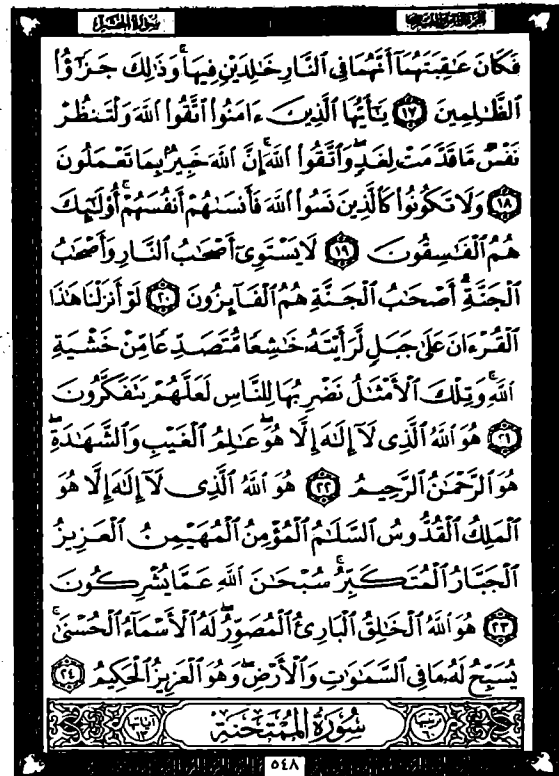 سُورَةُ الحَشْرِ
فَكَانَ عَٰقِبَتَهُمَآ أَنَّهُمَا فِي ٱلنَّارِ خَٰلِدَيْنِ فِيهَاۚ وَذَٰلِكَ جَزَٰٓؤُاْ
ٱلظَّٰلِمِينَ ١٧ يَٰٓأَيُّهَا ٱلَّذِينَ ءَامَنُواْ ٱتَّقُواْ ٱللَّهَ وَلْتَنظُرْ
نَفْسٌ مَّا قَدَّمَتْ لِغَدٍۖ وَٱتَّقُواْ ٱللَّهَۚ إِنَّ ٱللَّهَ خَبِيرٌۢ بِمَا تَعْمَلُونَ
١٨ وَلَا تَكُونُواْ كَٱلَّذِينَ نَسُواْ ٱللَّهَ فَأَنسَىٰهُمْ أَنفُسَهُمْۚ أُوْلَٰٓئِكَ
هُمُ ٱلْفَٰسِقُونَ ١٩ لَا يَسْتَوِىٓ أَصْحَٰبُ ٱلنَّارِ وَأَصْحَٰبُ
ٱلْجَنَّةِۚ أَصْحَٰبُ ٱلْجَنَّةِ هُمُ ٱلْفَآئِزُونَ ٢٠ لَوْ أَنزَلْنَا هَٰذَا
ٱلْقُرْءَانَ عَلَىٰ جَبَلٍ لَّرَأَيْتَهُۥ خَٰشِعًا مُّتَصَدِّعًا مِّنْ خَشْيَةِ
ٱللَّهِۚ وَتِلْكَ ٱلْأَمْثَٰلُ نَضْرِبُهَا لِلنَّاسِ لَعَلَّهُمْ يَتَفَكَّرُونَ
٢١ هُوَ ٱللَّهُ ٱلَّذِى لَآ إِلَٰهَ إِلَّا هُوَۖ عَٰلِمُ ٱلْغَيْبِ وَٱلشَّهَٰدَةِۖ
هُوَ ٱلرَّحْمَٰنُ ٱلرَّحِيمُ ٢٢ هُوَ ٱللَّهُ ٱلَّذِى لَآ إِلَٰهَ إِلَّا هُوَ
ٱلْمَلِكُ ٱلْقُدُّوسُ ٱلسَّلَٰمُ ٱلْمُؤْمِنُ ٱلْمُهَيْمِنُ ٱلْعَزِيزُ
ٱلْجَبَّارُ ٱلْمُتَكَبِّرُۚ سُبْحَٰنَ ٱللَّهِ عَمَّا يُشْرِكُونَ
٢٣ هُوَ ٱللَّهُ ٱلْخَٰلِقُ ٱلْبَارِئُ ٱلْمُصَوِّرُۖ لَهُ ٱلْأَسْمَآءُ ٱلْحُسْنَىٰۚ
يُسَبِّحُ لَهُۥ مَا فِى ٱلسَّمَٰوَٰتِ وَٱلْأَرْضِۖ وَهُوَ ٱلْعَزِيزُ ٱلْحَكِيمُ ٢٤
سُورَةُ المُمْتَحنَةِ
٥٤٨